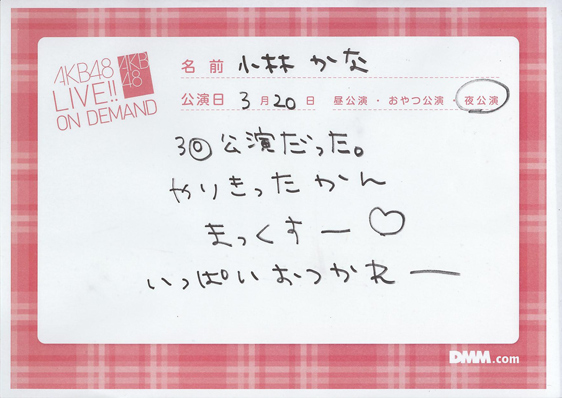 AKB48
LIVE!!
ON DEMAND
AKB
48
名前 小林かな
公演日 3月20日 昼公演・おやつ公演・夜公演
3回公演だった。
やりきったかん
まっくすー♡
いっぱいおつかれー
DMM.com